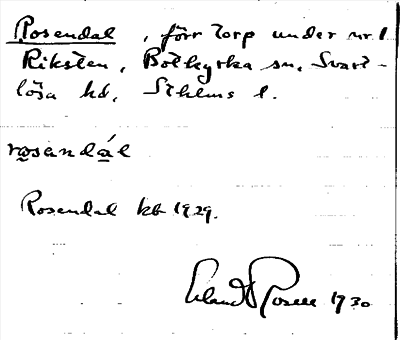 Rosendal, förr torp under nr. 1
Riksten, Botkyrka sn, Svart-
lösa hd, Sthlms l.
rosandál
Rosendal kb 1929.
Erland Rosell 1930